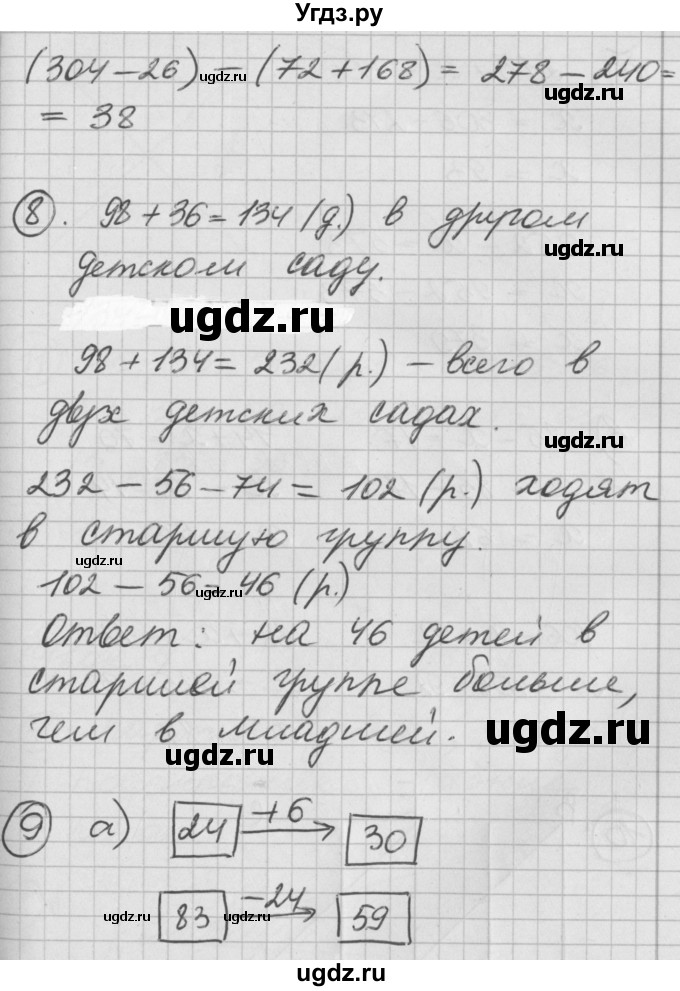 Угдз.ру
(304 – 26) – (72 + 168) = 278 – 240 =
= 38
8. 98 + 36 = 134 (д.) в другом
детском саду.
98 + 134 = 232 (р.) – всего в
двух детских садах.
232 – 56 – 74 = 102 (р.) ходят
в старшую группу.
102 – 56 = 46 (р.)
Ответ: на 46 детей в
старшей группе больше,
чем в младшей.
9 а) 24 +6 30
83 –24 59
ugdz.ru
ugdz.ru
ugdz.ru
ugdz.ru
ugdz.ru
ugdz.ru
ugdz.ru
ugdz.ru
ugdz.ru
ugdz.ru
ugdz.ru
ugdz.ru
ugdz.ru